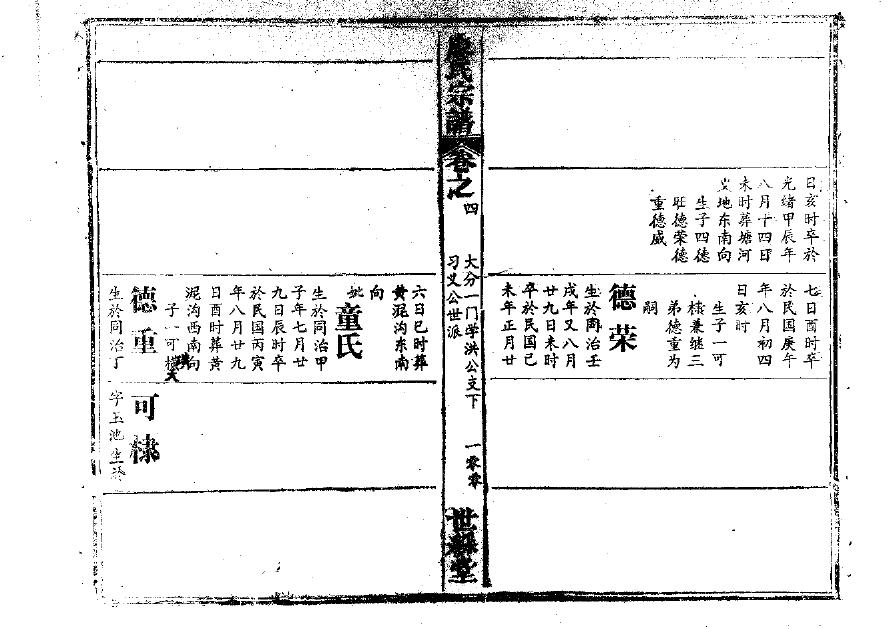 日亥时卒於
光绪甲辰年
八月十四日
未时葬塘河
义地东南向
生子四德
旺德荣德
重德威
七日酉时卒
於民国庚午
年八月初四
日亥时
生子一可
棣兼继三
弟德重为
嗣
德荣
生於同治壬
戌年又八月
廿九日未时
卒於民国己
未年正月廿
氏宗譜
卷之四
大分一门学洪公支下
习义公世派
一零零
世 堂
六日巳时葬
黄泥沟东南
向
妣童氏
生於同治甲
子年七月廿
九日辰时卒
於民国丙寅
年八月廿九
日酉时葬黄
泥沟西南向
子一可
德重
生於同治丁
可棣
字玉池生於